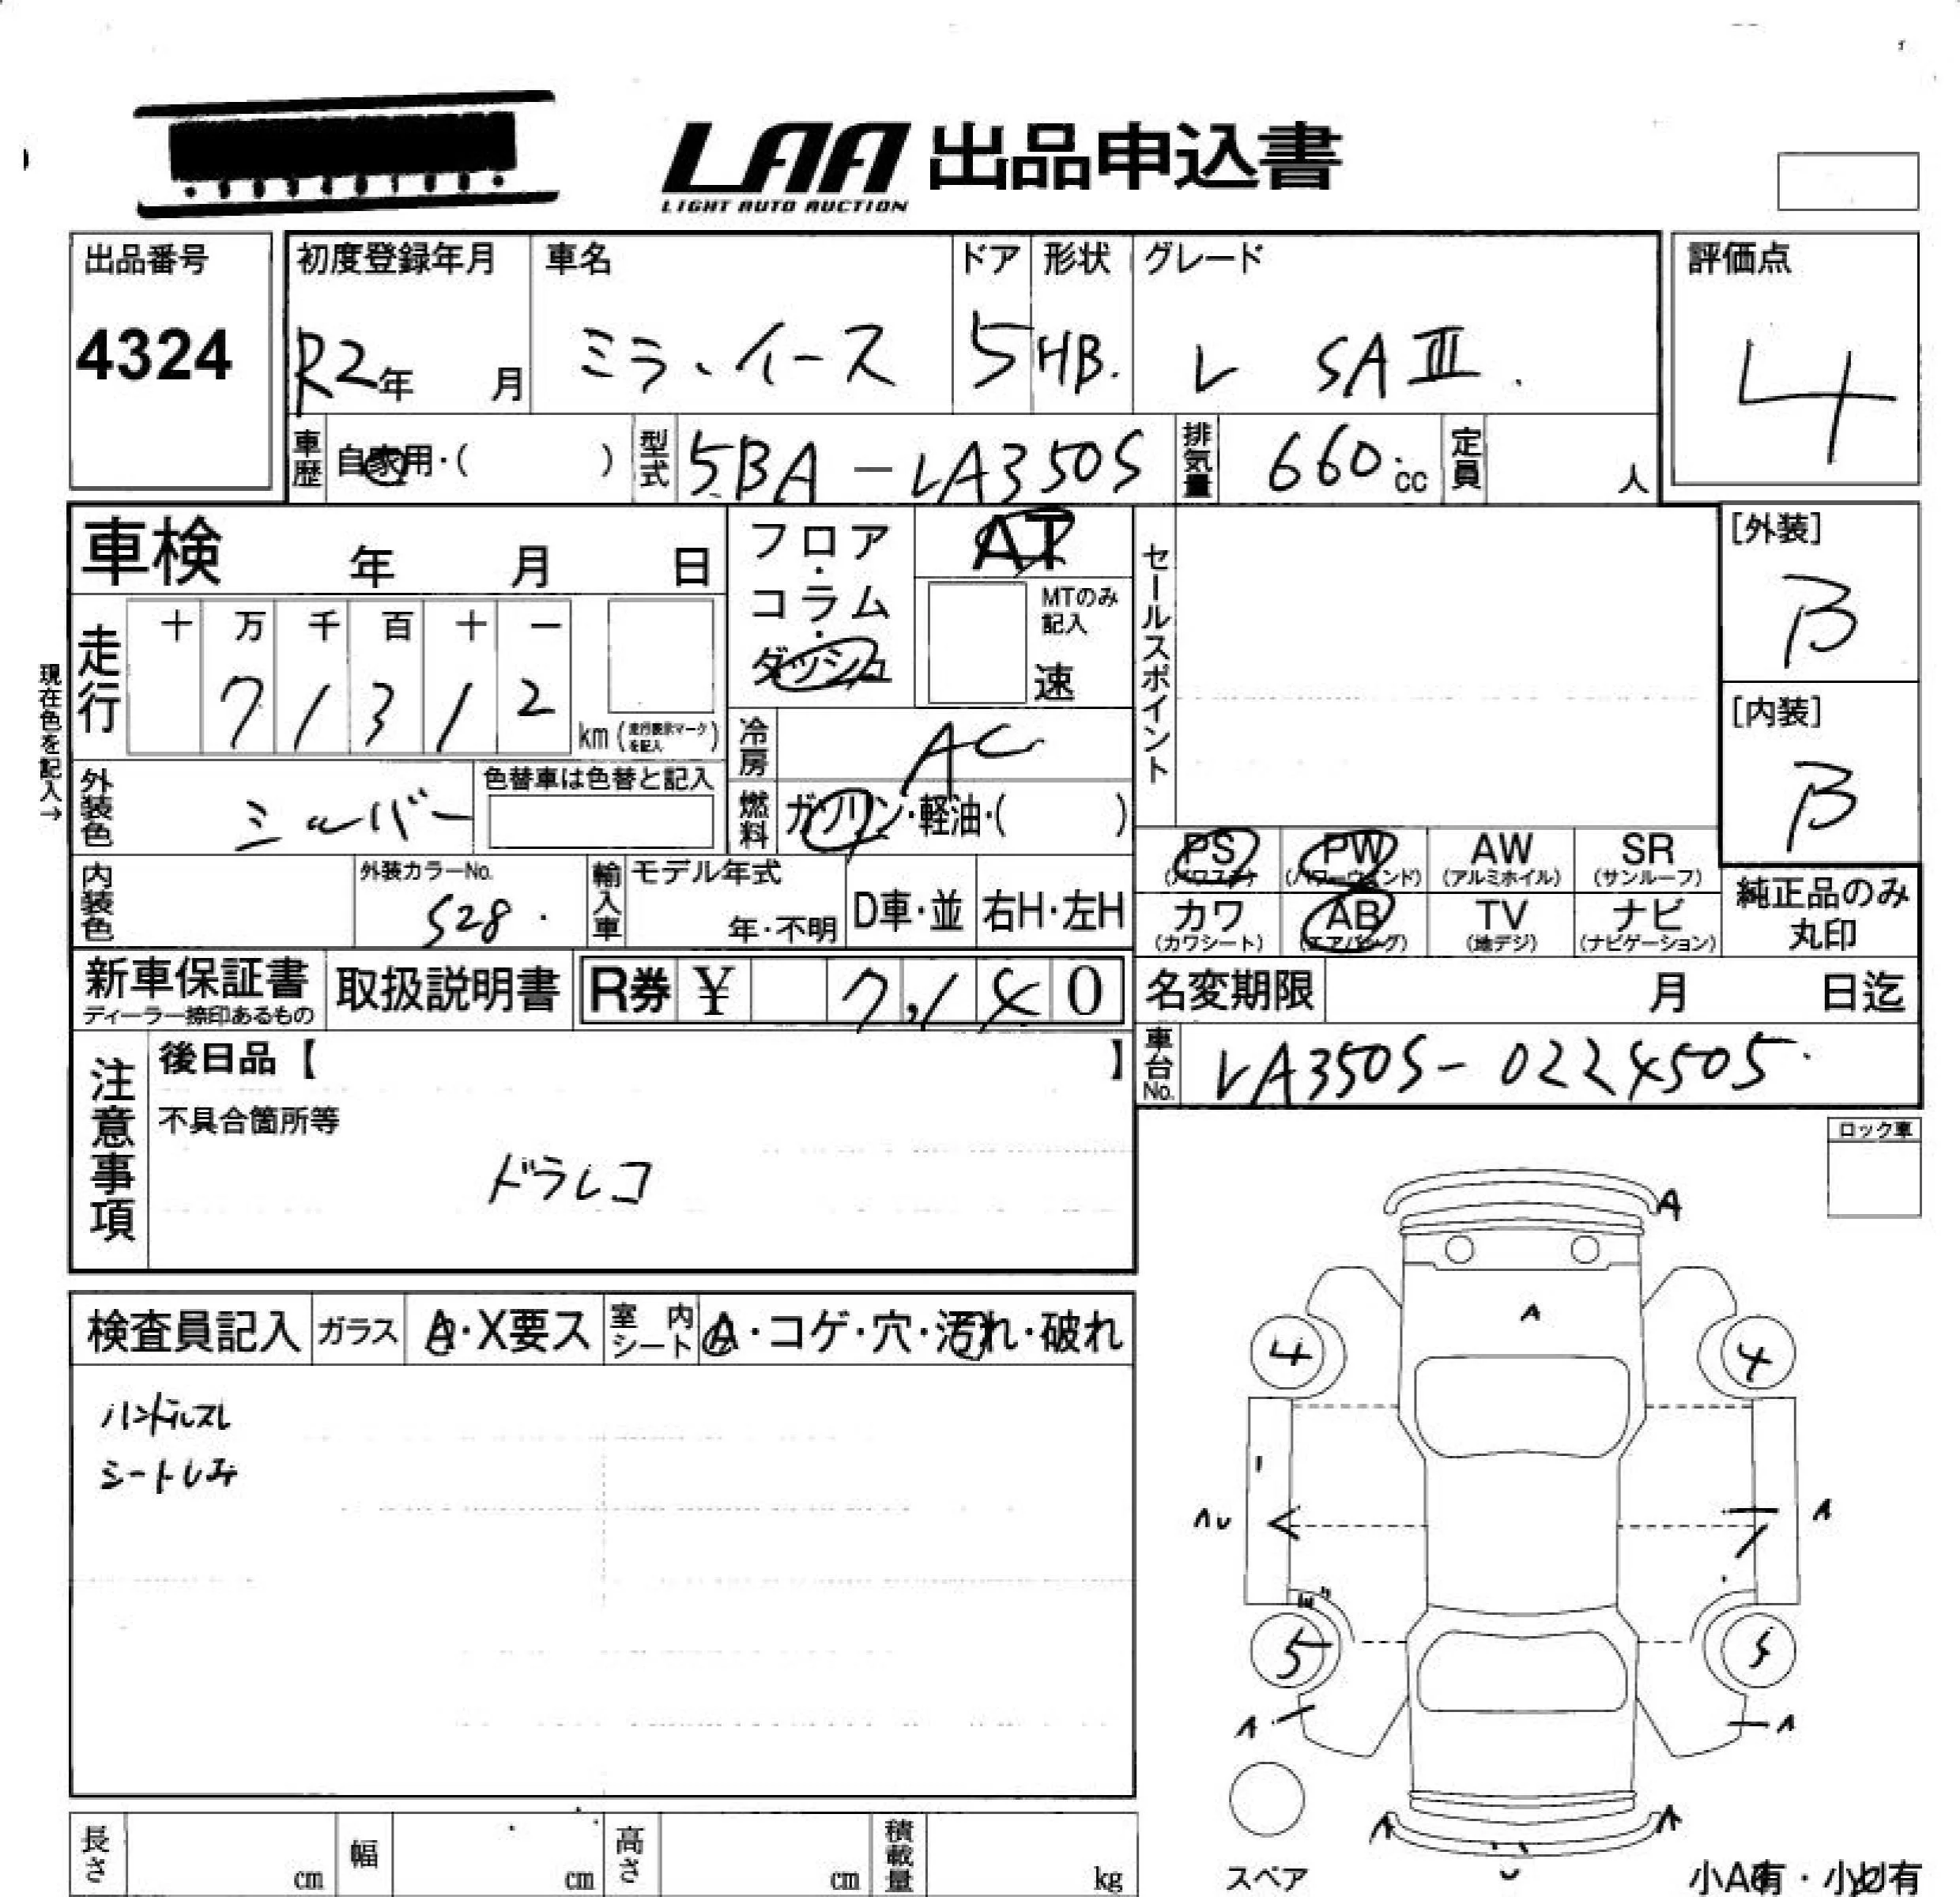 LAA 出品申込書
LIGHT AUTO AUCTION
出品番号
4324
初度登録年月 車名 ドア 形状 グレード
R2年 月 ミラ、イース 5 HB. L SAⅢ.
評価点
4
車歴 自家用・( ) 型式 5BA-LA350S 排気量 660 cc 定員 人
車検 年 月 日
フロア・コラム・ダッシュ
AT
MTのみ記入
速
セールスポイント
[外装]
B
[内装]
B
現在色を記入→
走行 十 万 千 百 十 一
7 1 3 1 2 km (走行表示マークを記入)
冷房 AC
外装色 シルバー 色替車は色替と記入
燃料 ガソリン・軽油・( )
PS (パワステ) PW (パワーウィンド) AW (アルミホイル) SR (サンルーフ)
カワ (カワシート) AB (エアバッグ) TV (地デジ) ナビ (ナビゲーション)
純正品のみ
丸印
内装色 外装カラーNo. S28. 輸入車 モデル年式 年・不明 D車・並 右H・左H
新車保証書 ディーラー捺印あるもの 取扱説明書 R券 ¥ 7,140
名変期限 月 日迄
車台No. LA350S-0224505.
注意事項
後日品【 】
不具合箇所等
ドラレコ
ロック車
検査員記入 ガラス A・X要ス 室内シート A・コゲ・穴・汚れ・破れ
ハンドルスレ
シートしみ
A
A
4 4
AU A
5 5
A A
A A
U
スペア
小A有・小U有
長さ cm 幅 cm 高さ cm 積載量 kg